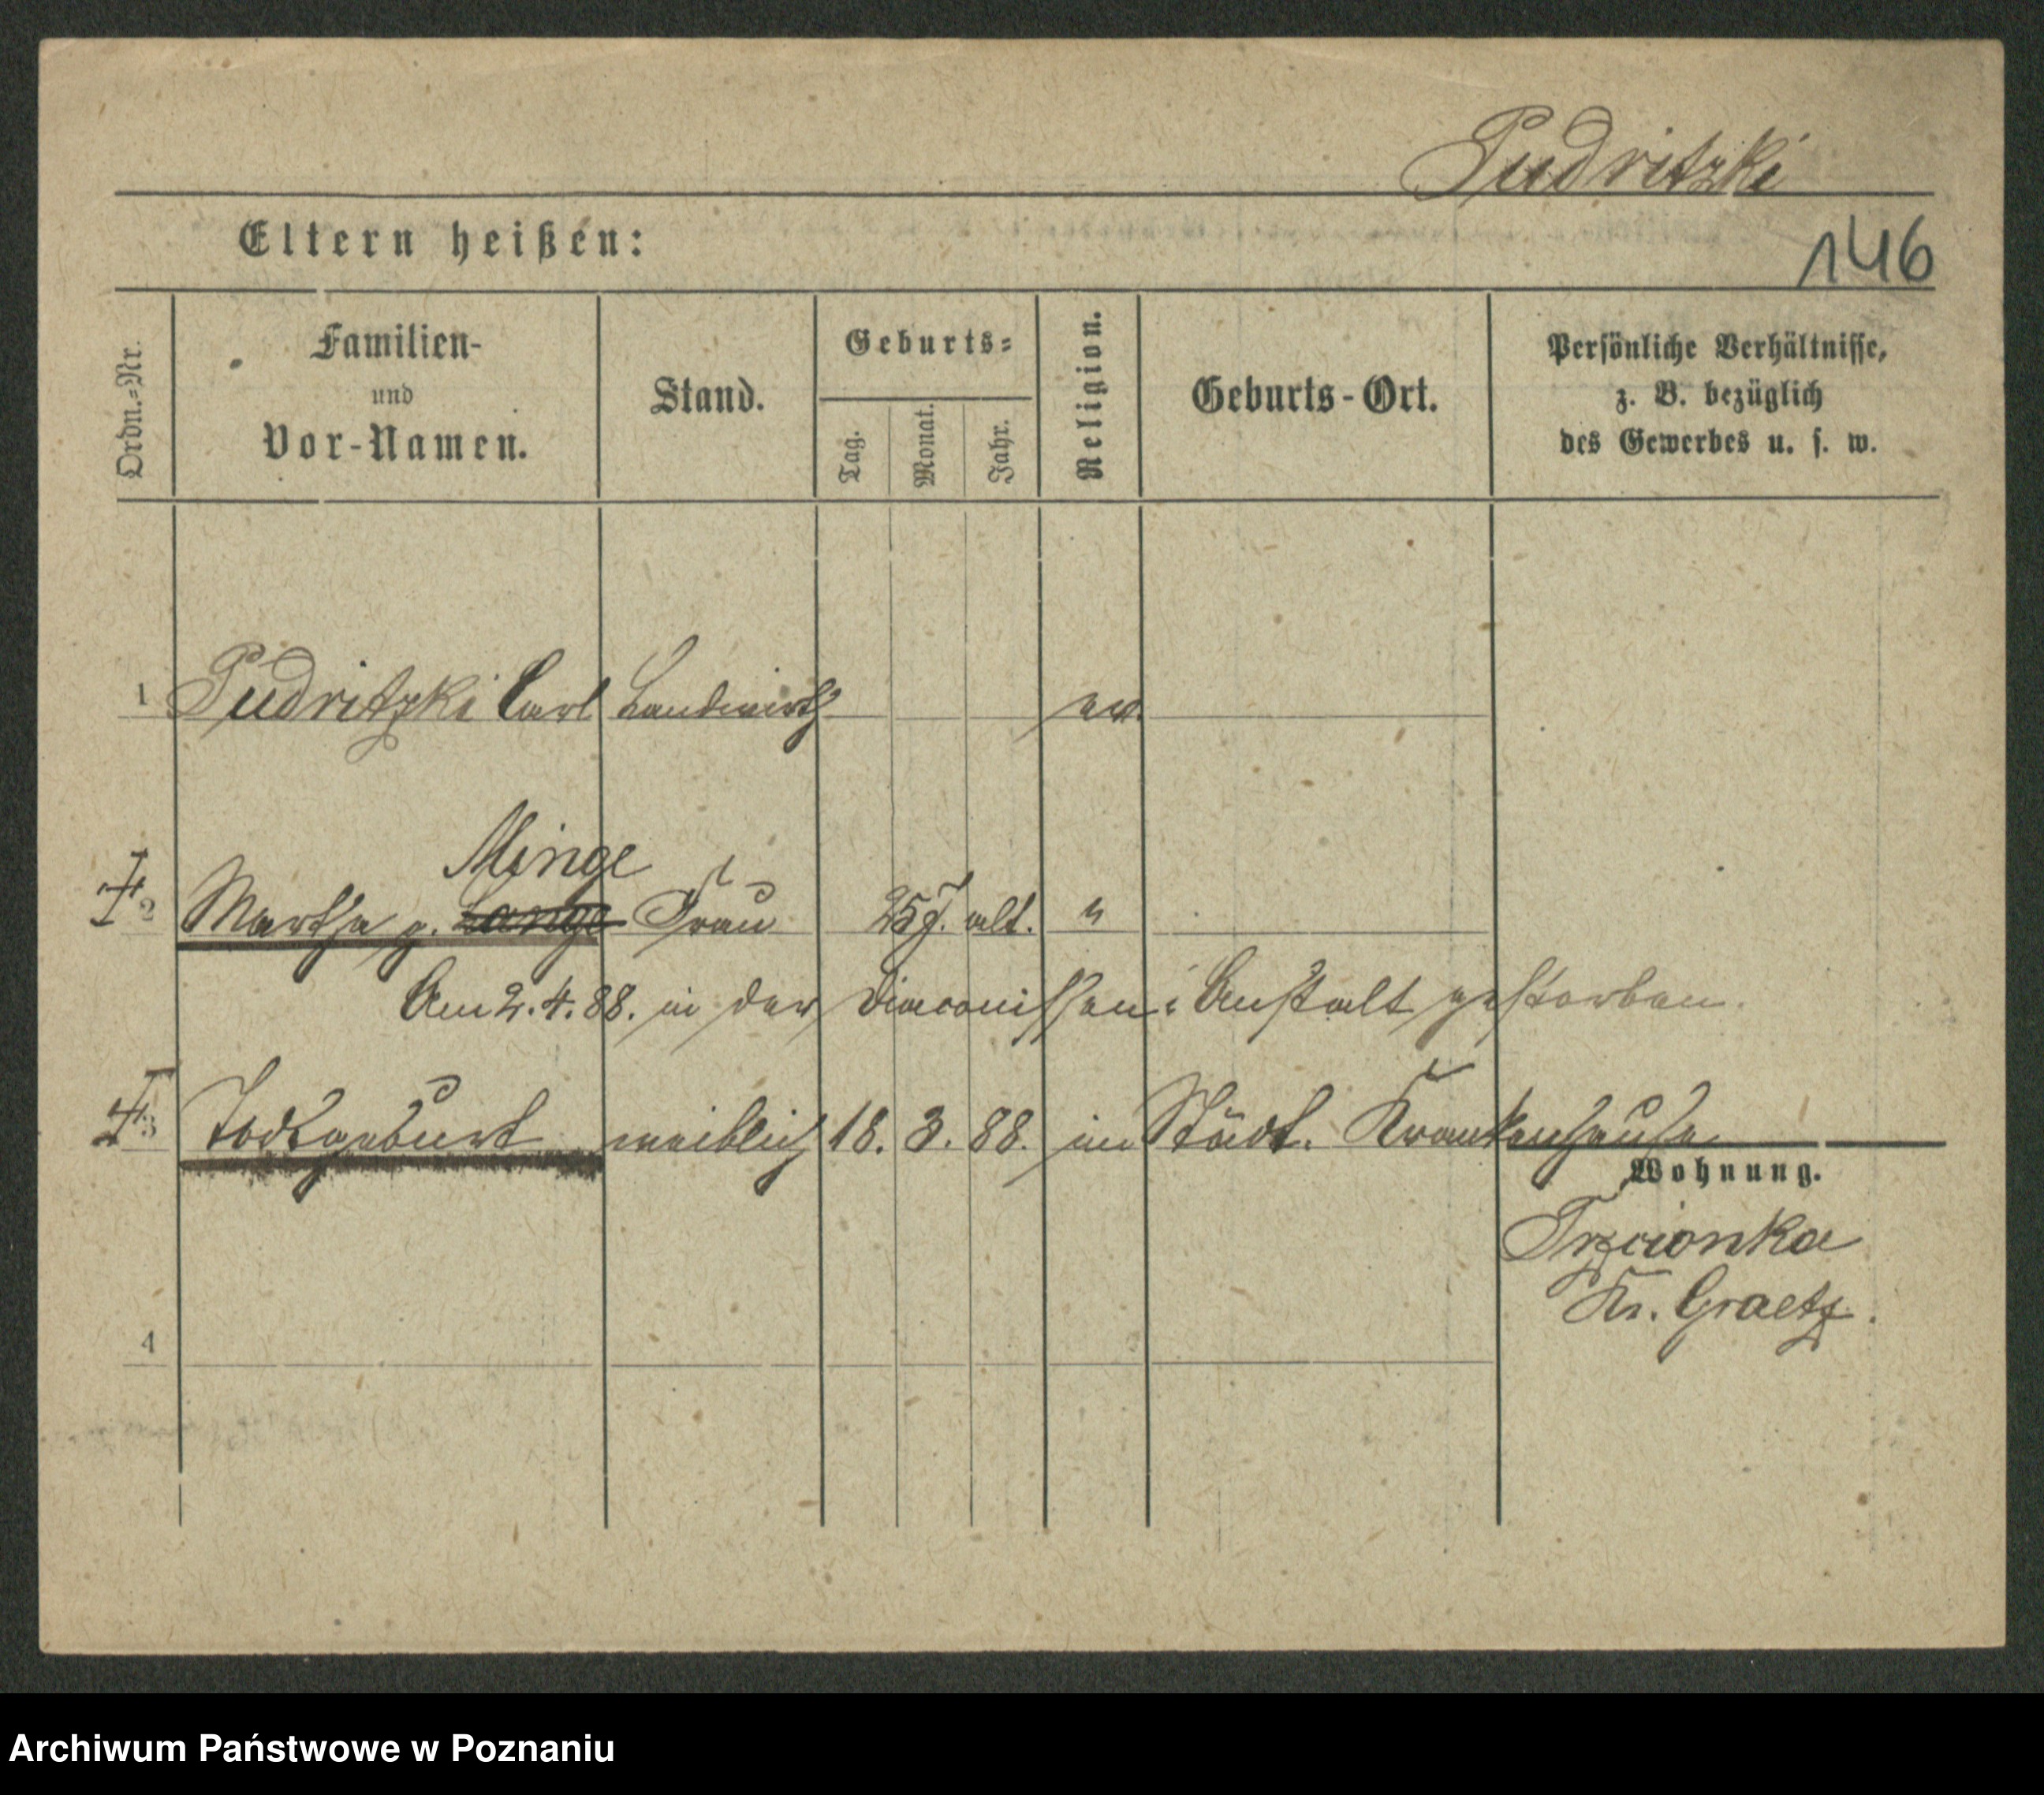 Pudritzki
Eltern heißen:
146
Ordn.-Nr.
Familien-
und
Vor-Namen.
Stand.
Geburts-
Tag.
Monat.
Jahr.
Religion.
Geburts-Ort.
Persönliche Verhältnisse,
z. B. bezüglich
des Gewerbes u. s. w.
1 Pudritzki Carl Landwirth ev.
Minge
2 Martha g. Lange Frau 25 J. alt. "
Am 2. 4. 88. in der Diaconissen-Anstalt gestorben.
3 Todtgeburt weiblich 18. 3. 88. im Städt. Krankenhause
Wohnung.
Trzcionka
Kr. Graetz.
4
Archiwum Państwowe w Poznaniu